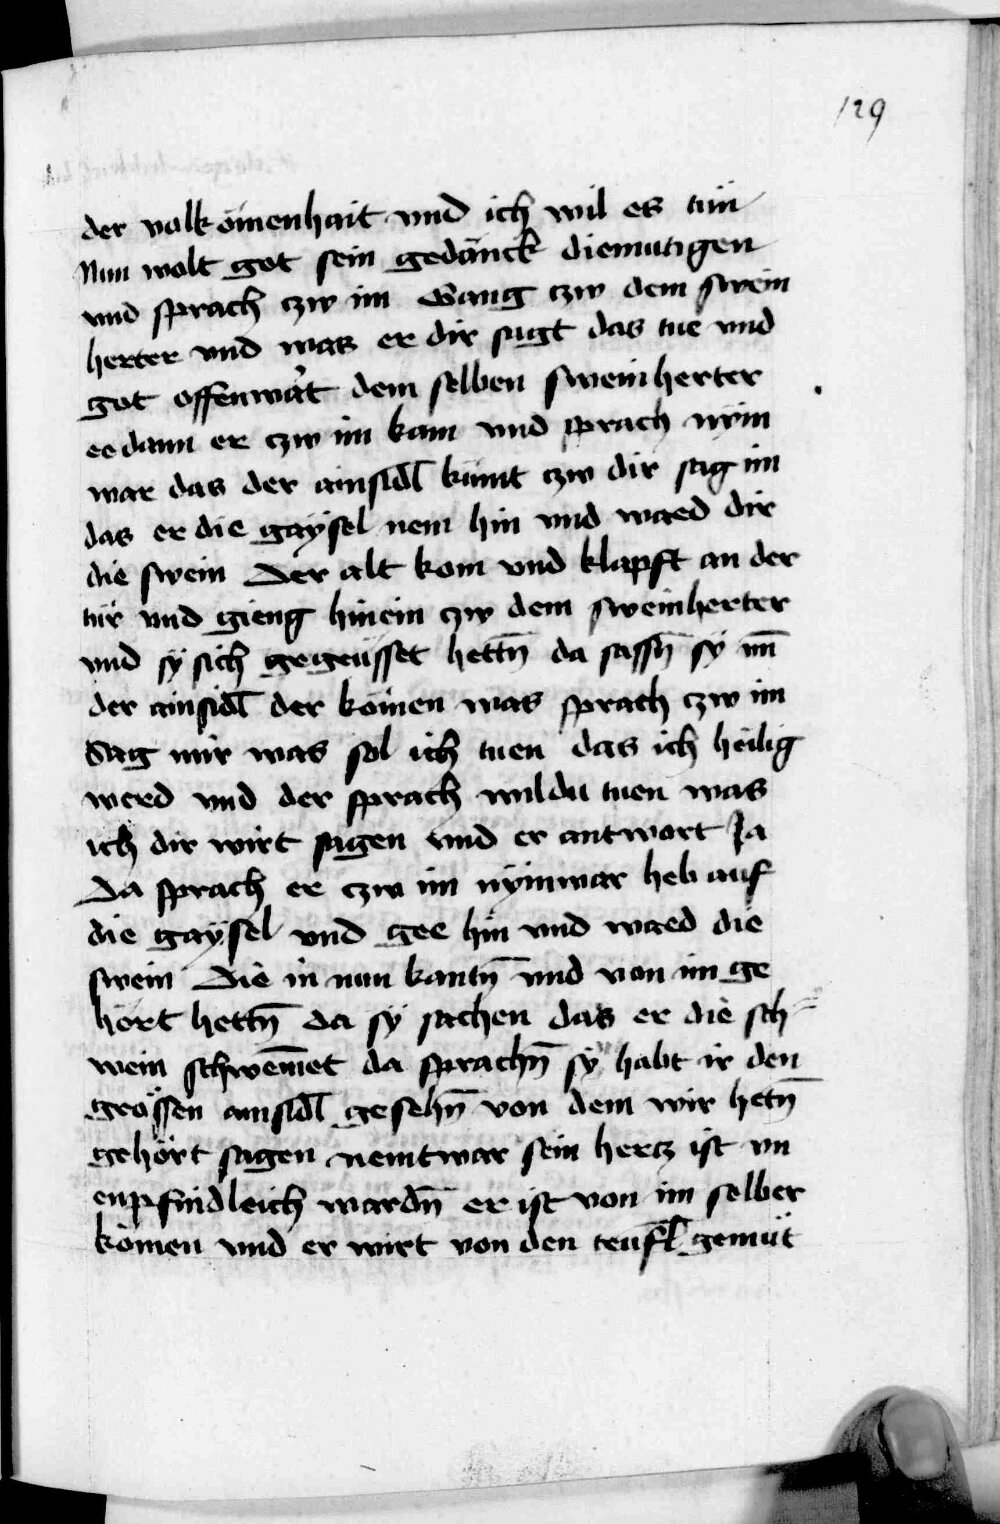 129
der volkömenhait vnd ich wil es tün
Nun wolt got sein gedänck diemutigen
vnd sprach czw im Gang czw dem swein
herter vnd was er dir sagt das tue vnd
got offenwat dem selben sweinherter
ee dann er czw im kam vnd sprach nÿm
war das der ainsidl kumt czw dir sag im
das er die gaÿsel nem hin vnd waed dir
die swein Der alt kom vnd klapft an der
tür vnd gieng hinein czw dem sweinherter
vnd sÿ sich gegeüsset hettn̄ da sassn̄ sÿ vn̄
der ainsidl der kömen was sprach czw im
Sag mir was sol ich tuen das ich heilig
werd vnd der sprach wildu tuen was
ich dir wirt sagen vnd er antwort Ja
Da sprach er czw im nÿmwar heb auf
die gaÿsel vnd gee hin vnd waed die
swein Die in nun kantn̄ vnd von im ge
hört hettn̄ da sÿ sachen das er die sch=
wein schwem̄et da sprachn̄ sÿ habt ir den
grössen ainsidl gesehn̄ von dem wir hetn̄
gehört sagen nemtwar sein hercz ist vn
enpfindleich wardn̄ er ist von im selber
kömen vnd er wirt von den teufl gemüt